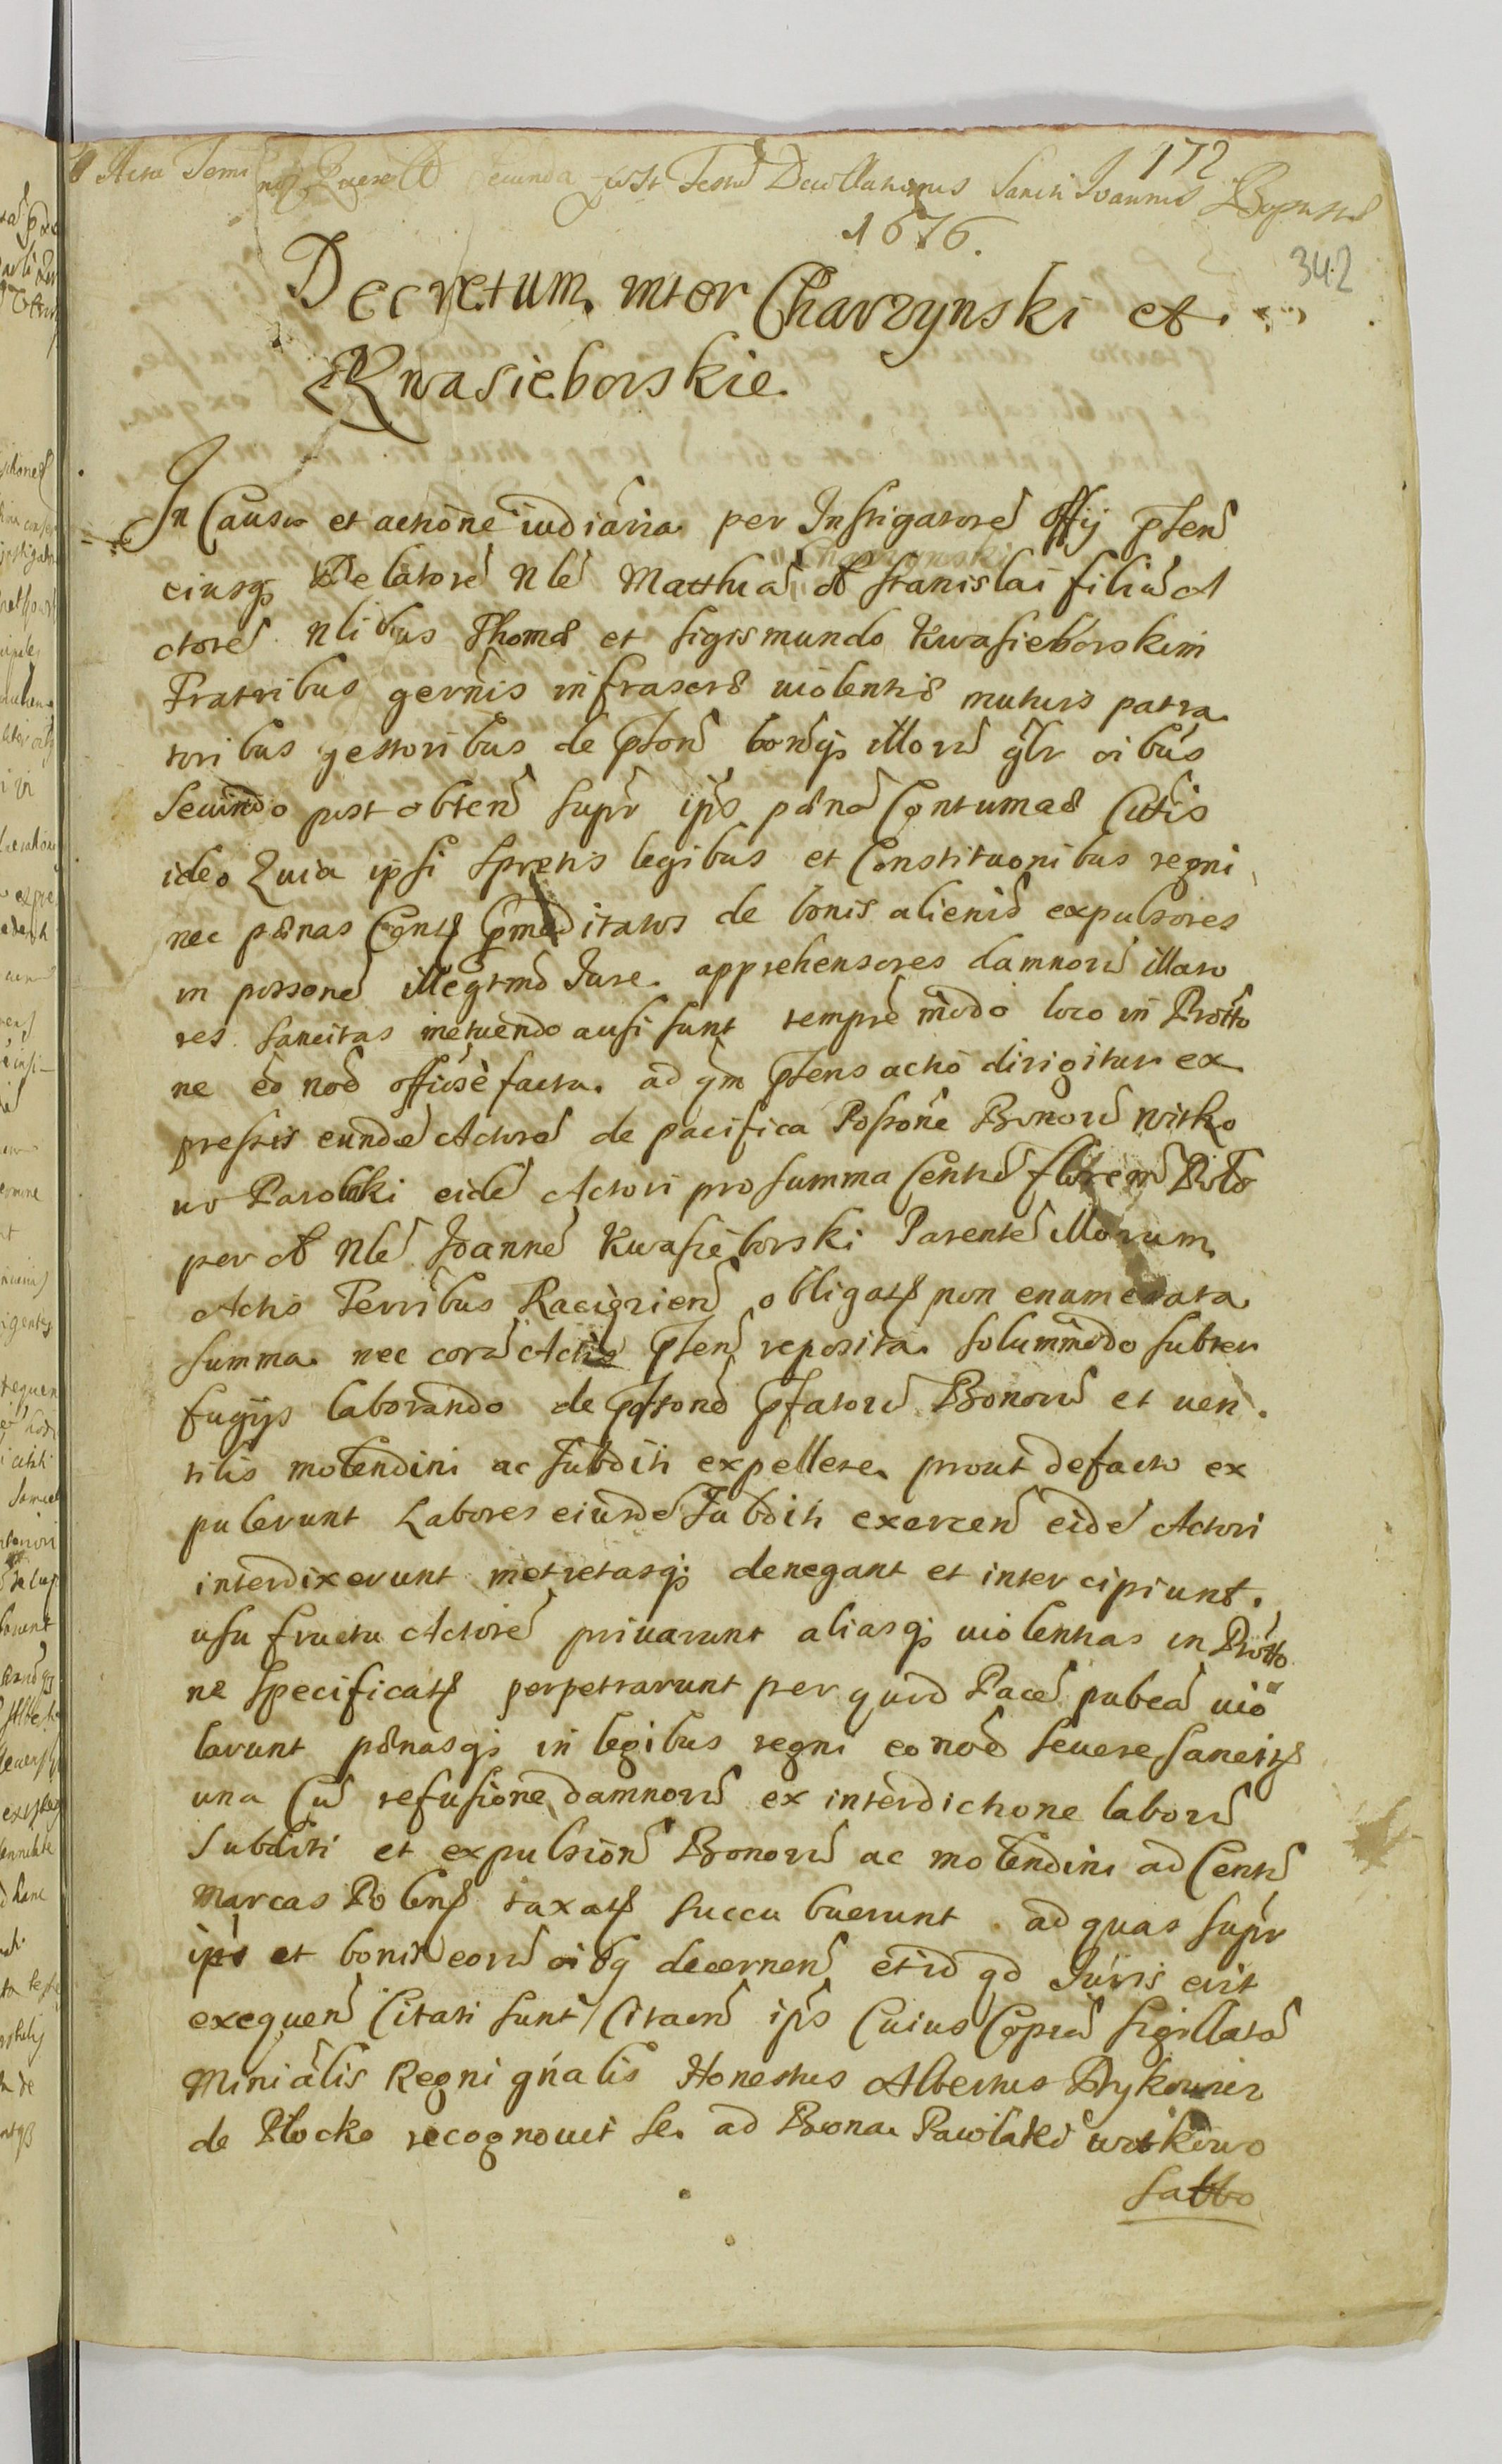 172
Acta Termi Querell Secunda post Festum Decollationis Sancti Joannis Baptistae
1676.
342
Decretum inter Charzynski et
Kwasieborskie.
In Causa et actione iudiaria per Instigatore Offij pten
eiusq Delatore Nle Matthia Charzynski A Stanislai filiu A
ctore Nlibus Thoma et Sigismundo Kwasieborskim
Fratribus gernis infrascr violentis mutuis patra
toribus gestoribus de pton bonisq illoru glr oibus
Secundo post obten supr ips pæna Contumac Citis
ideo Quia ipsi Spretis legibus et Constituonibus regni
nec pænas Cont pmeditatos de bonis alienis expulsores
in possone illegtmo Jure apprehensores damnoru illato
res sancitas metuendo ausi sunt tempre modo loco in Protto
ne eo noe offiose facta ad qm ptens actio dirigitur ex
pressis eunde Actore de pacifica Possone Bonoru Witko
wo Pawlaki eide Actori pro summa Centu flor Polo
per A Nle Joanne Kwasieborski Parente illorum
Actis Terribus Raciązien obligat non enumerata
summa nec cora Actis pten reposita solummodo subter
fugijs laborando de possone pfatoru Bonoru et uen
tilis molendini ac subditi expellere prout defacto ex
pulerunt Labores eiusde Subditi exercen eide Actori
interdixerunt metretasq denegant et intercipiunt.
usu fructu Actore privarunt aliasq violentias in Protto
ne specificat perpetrarunt per quid Pace pubca vio
larunt pænasq in legibus regni eo noe severe sancit
una Cu refusione damnoru ex interdictione laboru
Subditi et expulsion Bonoru ac molendini ad Centu
Marcas Polon taxat succubuerunt ad quas supr
ips et bonis eoru oibq decernen et id qd Juris erit
exequen Citati sunt Citaon ips Cuius Copia sigillata
Minialis Regni gnalis Honestus Albertus
de Plocko recognovit se ad Bona Pawlaki Witkowo
Satto